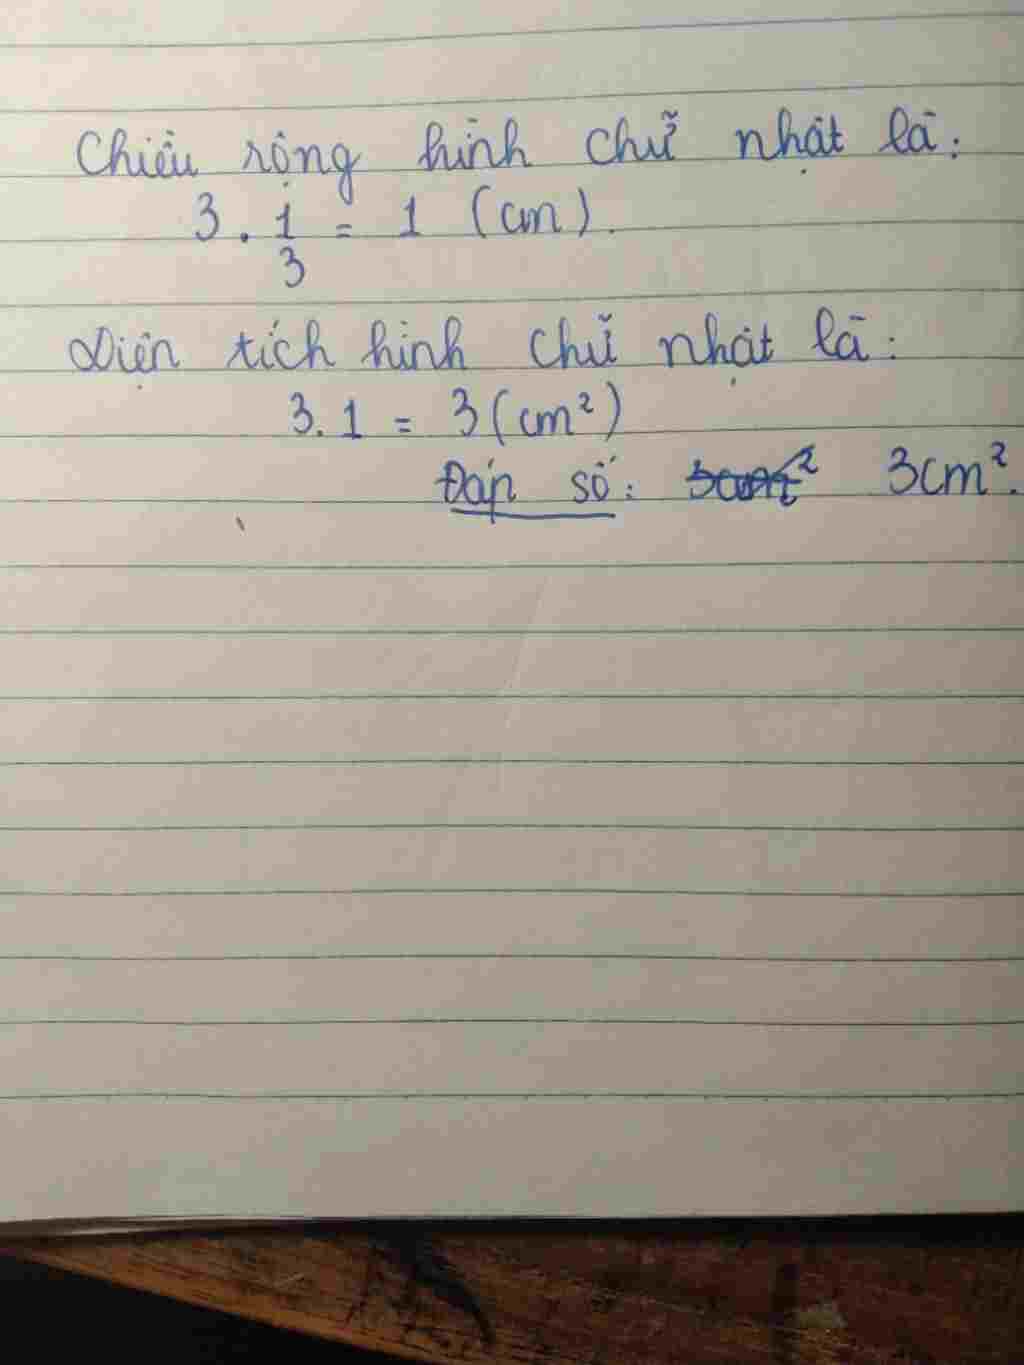 Chiều rộng hình chữ nhật là:
3 . 1/3 = 1 (cm).
Diện tích hình chữ nhật là:
3.1 = 3 (cm²)
Đáp số: 3cm².